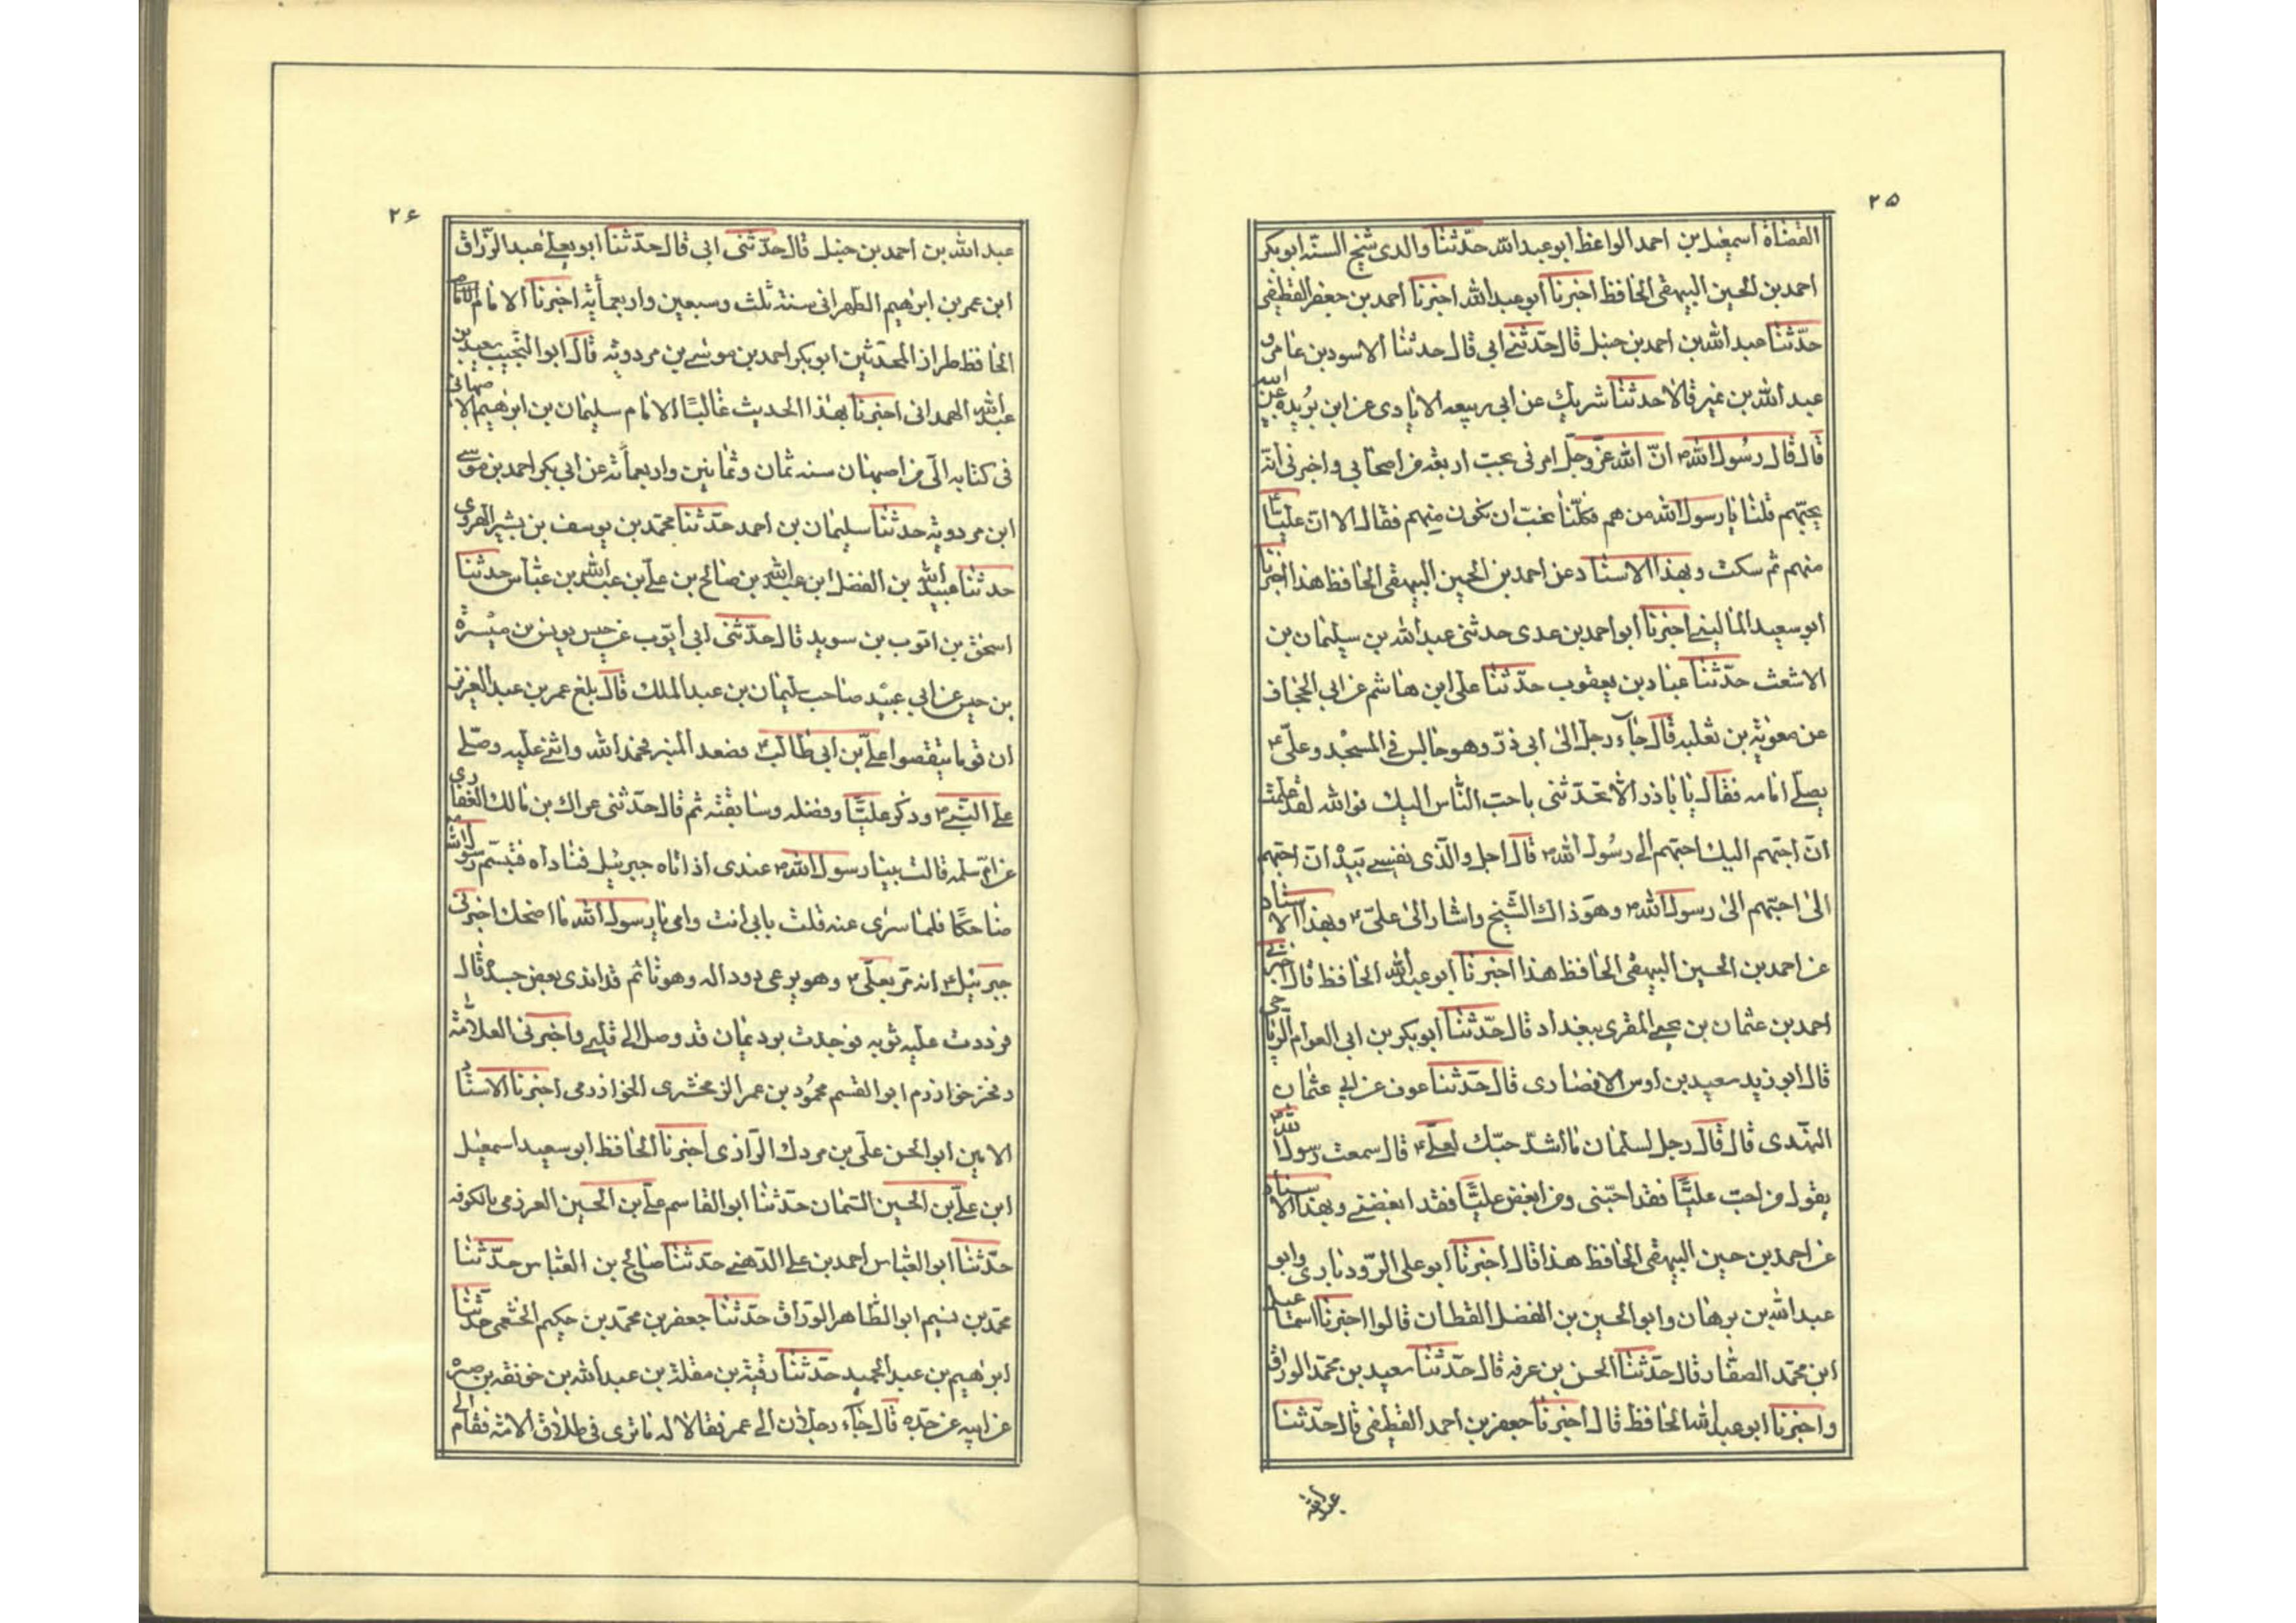 ٢٥
القضاة اسمعيل بن احمد الواعظ ابو عبد الله حدّثنا والدى شيخ السنّه ابو بكر
احمد بن الحسين البيهقى الحافظ اخبرنا ابو عبد الله اخبرنا احمد بن جعفر القطيفى
حدّثنا عبد الله بن احمد بن حنبل قال حدّثنے ابى قال حدثنا الاسود بن عامر و
عبد الله بن نمير قالا حدثنا شريك عن ابى ربيعه الايادى عن ابن بريده عن ابيه
قال قال رسول الله ص انّ الله عزّ وجلّ امرنى بحبّ اربعة من اصحابى و اخبرنى انّه
يحبّهم قلنا يا رسول الله من هم فكلّنا نحبّ ان نكون منهم فقال الا انّ عليّا ع
منهم ثم سكت و بهذا الاسناد عن احمد بن الحسين البيهقى الحافظ هذا اخبرنا
ابو سعيد المالينے اخبرنا ابو احمد بن عدى حدثنى عبد الله بن سليمان بن
الاشعث حدّثنا عباد بن يعقوب حدّثنا على ابن هاشم عن ابى الجحاف
عن معوية بن ثعلبه قال جاء رجل الى ابى ذرّ وهو جالس فى المسجد و علىّ ع
يصلّے امامه فقال يا باذر الا تحدّثنى باحبّ النّاس اليك فوالله لقد علمت
انّ احبّهم اليك احبّهم الى رسول الله ص قال اجل والّذى نفسے بيده انّ احبّهم
الىّ احبّهم الى رسول الله ص و هو ذاك الشّيخ واشار الى علىّ ع و بهذا الاسناد
عن احمد بن الحسين البيهقى الحافظ هذا اخبرنا ابو عبد الله الحافظ قال اخبرنے
احمد بن عثمان بن يحيے المقرى ببغداد قال حدّثنا ابو بكر بن ابى العوام الرياحى
قال ابو زيد سعيد بن اوس الانصارى قال حدّثنا عوف عن ابى عثمان
النّهدى قال قال رجل لسلمان ما اشدّ حبّك لعلىّ ع قال سمعت رسول الله ص
يقول من احبّ عليّا فقد احبّنى و من ابغض عليّا فقد ابغضنے و بهذا الاسناد
عن احمد بن حسين البيهقى الحافظ هذا قال اخبرنا ابو على الرّودبارى وابو
عبد الله بن برهان و ابو الحسين بن الفضل القطان قالوا اخبرنا اسمعيل
ابن محمّد الصفّار قال حدّثنا الحسن بن عرفه قال حدّثنا سعيد بن محمّد الوراق
و اخبرنا ابو عبد الله الحافظ قال اخبرنا جعفر بن احمد القطيفى قال حدّثنا
عبد الله
٢۶
عبد الله بن احمد بن حنبل قال حدّثنى ابى قال حدّثنا ابو يعلے عبد الرزّاق
ابن عمر بن ابرهيم الطهرانى سنة ثلث و سبعين و اربعمأية اخبرنا الامام
الحافظ طراز المحدّثين ابو بكر احمد بن موسے بن مردويه قال ابو النّجيب سعيد بن
عبد الله الهمدانى اخبرنا بهذا الحديث عاليا الامام سليمان بن ابرهيم الاصبهانى
فى كتابه الىّ من اصبهان سنه ثمان و ثمانين و اربعمأته عن ابى بكر احمد بن موسے
ابن مردويه حدثنا سليمان بن احمد حدّثنا محمّد بن يوسف بن بشير الهروى
حدثنا عبيد الله بن الفضل ابن عبد الله بن صالح بن على بن عبد الله بن عبّاس حدثنا
اسحق بن ايّوب بن سويد قال حدّثنى ابى ايّوب عن حبس يونس بن ميسرة
بن حبس عن ابى عبيد صاحب سليمان بن عبد الملك قال بلغ عمر بن عبد العزيز
ان قوما ينقصوا علىّ بن ابى طالب ع فصعد المنبر فحمد الله واثنے عليه و صلّے
على النّبے ص و ذكر عليّا و فضله و سابقته ثم قال حدّثنى عراك بن مالك الغفارى
عن امّ سلمه قالت بينا رسول الله ص عندى اذ اتاه جبرئيل فناداه فتبسّم رسول الله ص
ضاحكا فلما سرى عنه قلت بابى انت و امى يا رسول الله ما اضحك اخبرنى
جبرئيل ع انه مرّ بعلىّ ع و هو يرعى ذودا له و هو نائم قد ابدى بعض جسده قال
فرددت عليه ثوبه فوجدت برد ايمان قد وصل الى قلبے و اخبرنى العلاّمة
فخر خوارزم ابو القسم محمود بن عمر الزمخشرى الخوارزمى اخبرنا الاستاد
الامين ابو الحسن علىّ بن مردك الرّازى اخبرنا الحافظ ابو سعيد اسمعيل
ابن علىّ بن الحسين السّمان حدّثنا ابو القاسم علىّ بن الحسين العرزمى بالكوفه
حدّثنا ابو العبّاس احمد بن على الدّهنے حدّثنا صالح بن العبّاس حدّثنا
محمّد بن نسيم ابو الطّاهر الورّاق حدّثنا جعفر بن محمّد بن حكيم الخثعمى حدّثنا
ابرهيم بن عبد الحميد حدّثنا رقبة بن مقلة بن عبد الله بن خونقه بن صبره
عن ابيه عن جدّه قال جاء رجلان الى عمر فقالا له ما ترى فى طلاق الامة فقام الى